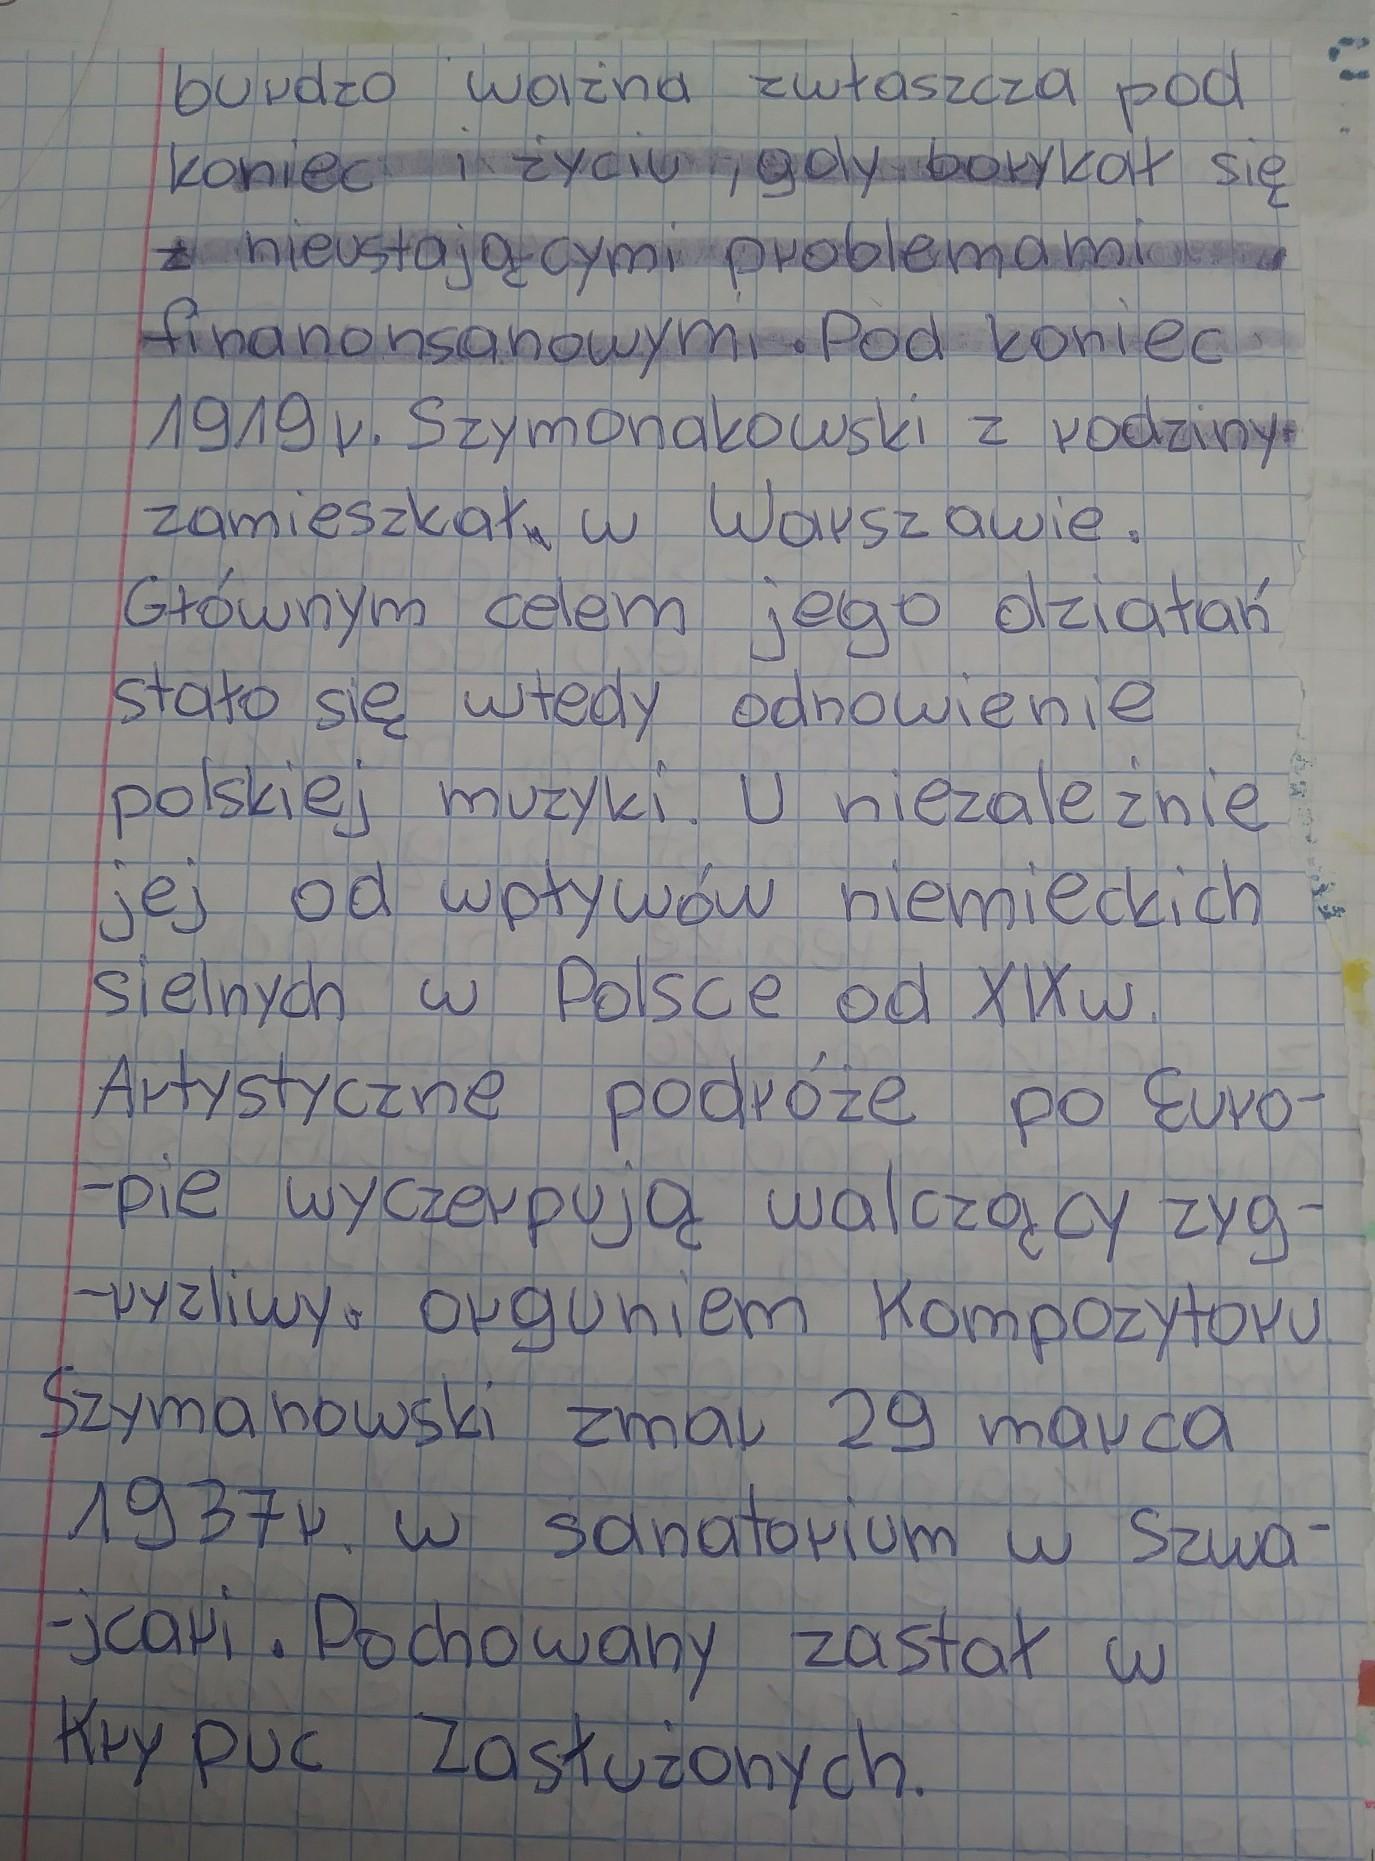 burdzo ważna zwłaszcza pod
koniec i życiu, gdy borykał się
z nieustającymi problemami
finanonsanowymi. Pod koniec
1919r. Szymonakowski z rodziny
zamieszkał w Warszawie.
Głównym celem jego działań
stało się wtedy odnowienie
polskiej muzyki. U niezależnie
jej od wpływów niemieckich
sielnych w Polsce od XIXw.
Artystyczne podróże po Euro-
-pie wyczerpują walczący zyg-
-ryzliwy. orguniem Kompozytoru
Szymanowski zmar 29 marca
1937r. w sanatorium w Szwa-
-jcari. Pochowany zastał w
Krypuc Zasłużonych.